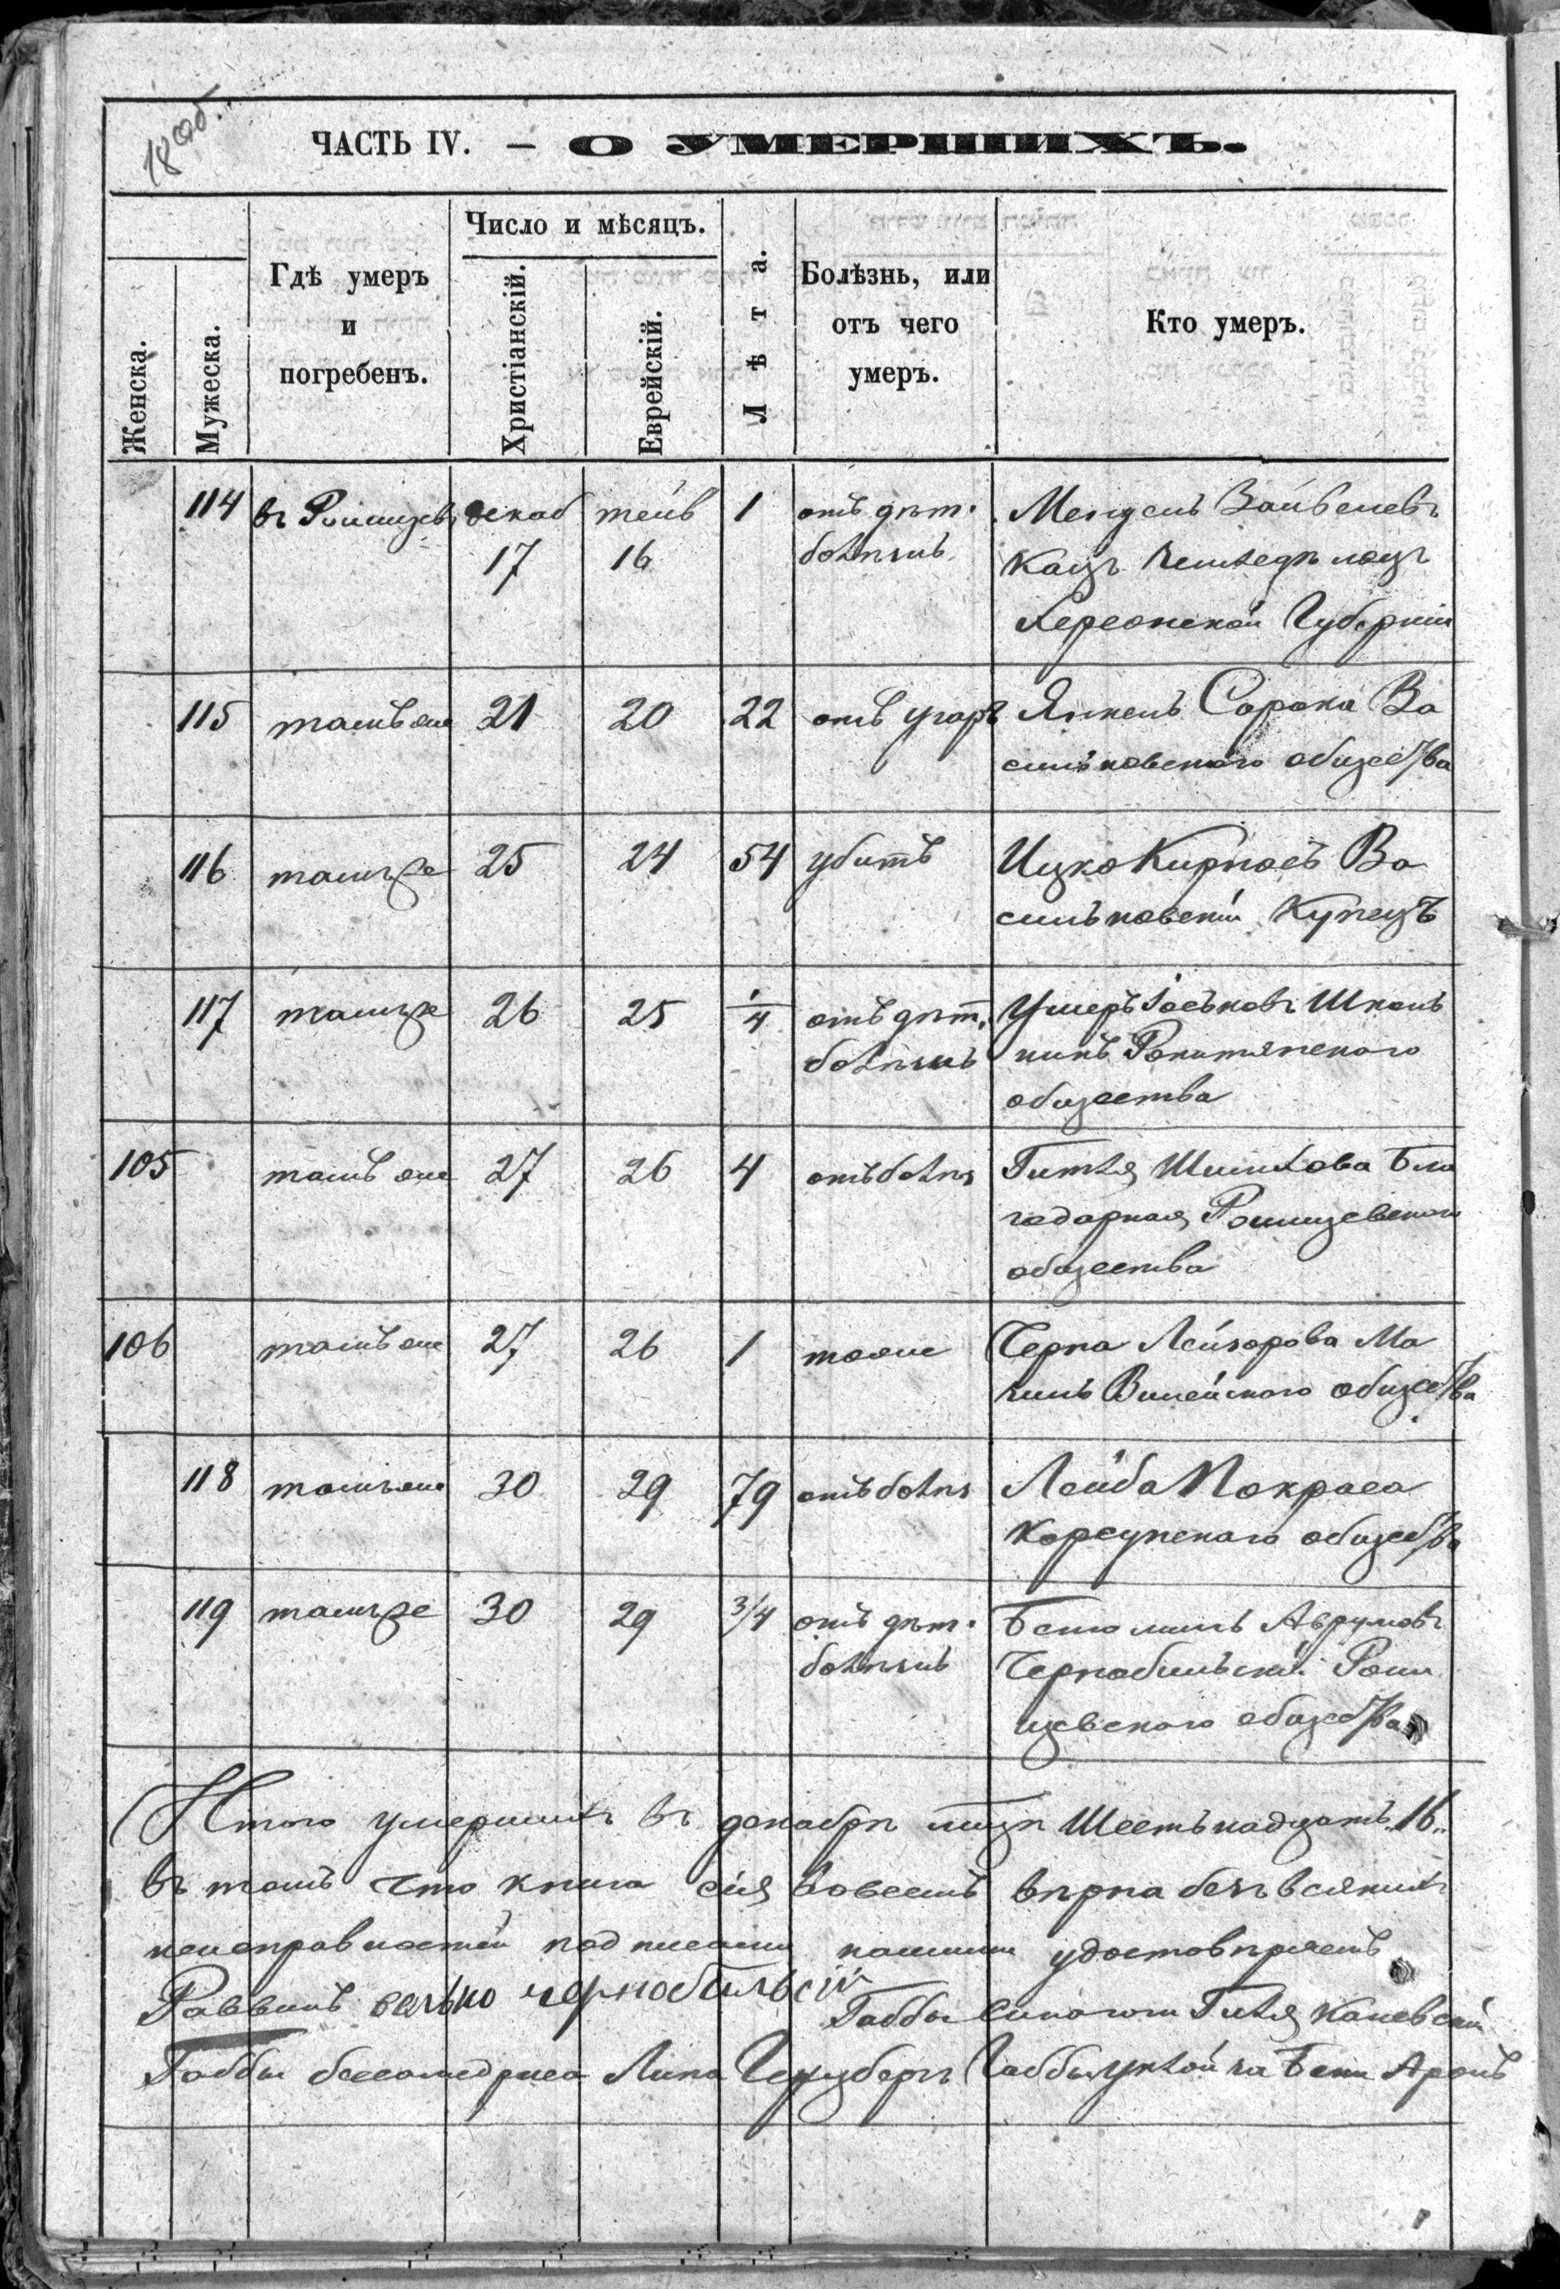 18 об.
ЧАСТЬ IV. — О УМЕРШИХЪ.
Женска.
Мужеска.
Гдѣ умеръ
и
погребенъ.
Число и мѣсяцъ.
Христіанскій.
Еврейскій.
Лѣта.
Болѣзнь, или
отъ чего
умеръ.
Кто умеръ.
114 въ декаб тейв 1 отъ дѣт.
17 16
Кацъ
Херсонской Губерніи
115 тамъ же 21 20 22 отъ угара Янкель Сорока Ва
сильковскаго общест/ва
116 тамъ же 25 24 54 убитъ Ицко Ва
сильковскій Купецъ
117 тамъ же 26 25 1/4 отъ дѣт. Умеръ Іоськовъ Школь
никъ Рокитянского
общества
105 тамъ же 27 26 4 отъ болѣз Гитля Шмилова Бла
годарная Ромищевского
общества
106 тамъ же 27 26 1 тоже Черна Лейзорова Ма
общест/ва
118 тамъ же 30 29 79 отъ болѣз Лейба Покраса
Корсунскаго общест/ва
119 тамъ же 30 29 3/4 отъ дѣт. Бенюминъ Аврумовъ
Чернобильскій Роми
щевского общест/ва
Итого умершихъ въ декабрѣ мцѣ Шестьнадцать „16„
въ томъ что книга сія вовсемъ вѣрна безъ всякихъ
неисправностей подписами нашими удостовѣряемъ
Раввинъ чернобильскій Габбы Синагоги Гиля Каневскій
Габбы бесамедриса Липа Гинзбергъ Габбы Бени Аронъ